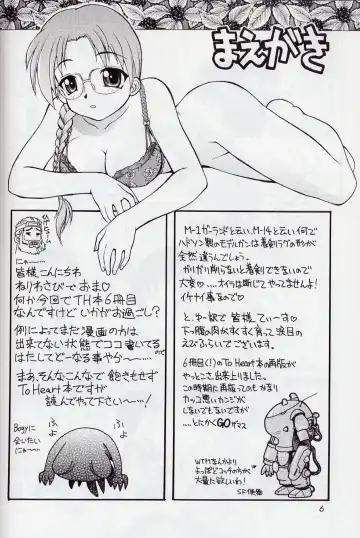 まえがき
にゃー……
皆様こんにちわ
ねりわさびせおま♡
何か今回でTH本6冊目
なんですけど いかがお過ごし?
例によってまた漫画の方は
出来てない状態でココ書いてる
はたしてどーなる事やら〜……
まぁ、そんなこんなで飽きもせず
To Heart本ですが
読んでやって下さい〜……!
Bogyに
会いたい
にゃー……
ぷよ
ぷよ
M-1ガーランドと云い、M-14と云い何で
ハドソン製のモデルガンは着剣ラグの形が
全然違うんでしょう。
ガリガリ削らないと着剣できないので
大変♡……オイラは断じてやってませんよ!
イケナイ事なので♡
と、ゆー訳で 皆様 でぃーす♡
下っ腹の肉が永すく育つ 浪目の
えどふらいでございます。
6冊目(!)のTo Heart本の再版が
やっとこさ、出来上りました。
この時期に再販ってのも かなり
カッコ悪いカンジが
しないでもないですが
……とにかくGOザマス
WTMさんかより
よっぽどコッチの方が
大量に欲しいわ!
SF使
6